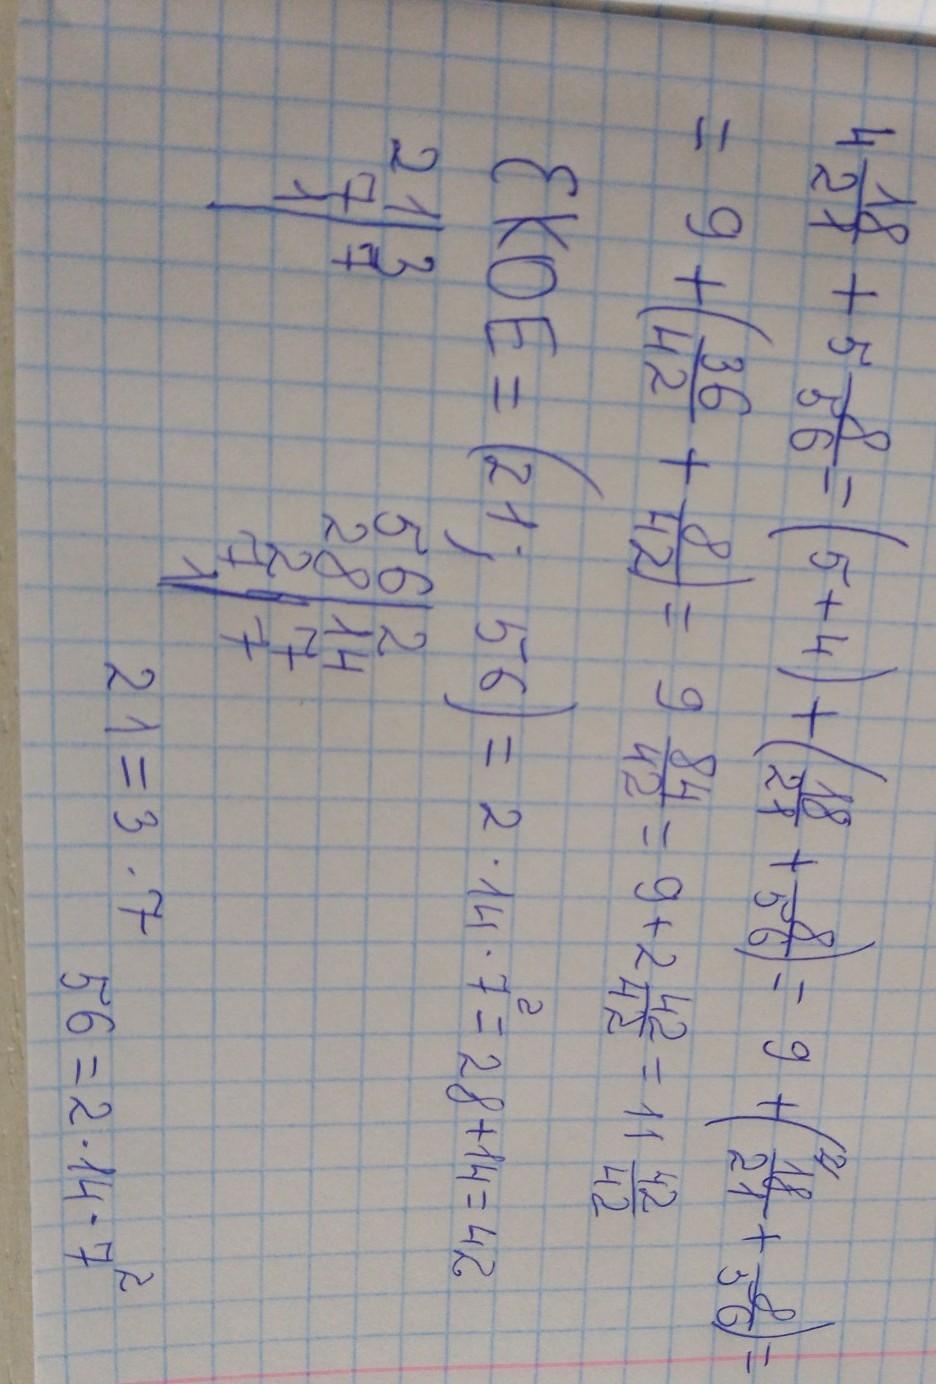 4 18/21 + 5 8/56 = (5+4) + (18/21 + 8/56) = 9 + (18/21 ² + 8/56) =
= 9 + (36/42 + 8/42) = 9 84/42 = 9 + 2 42/42 = 11 42/42
ЕКОЕ = (21; 56) = 2 · 14 · 7² = 28 + 14 = 42
21 | 3
7 | 7
1 |
56 | 2
28 | 14
2 | 7
7 | 7
1 |
21 = 3 · 7
56 = 2 · 14 · 7²